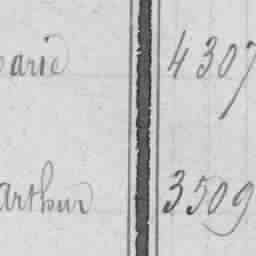 Marie 4307
Arthur 3509